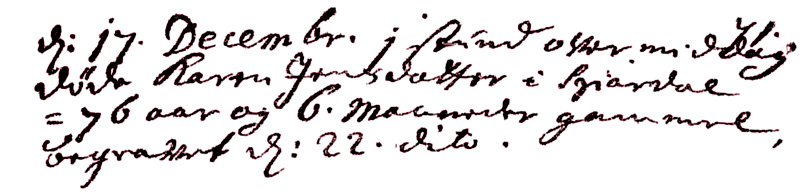 d: 17. Decembr. j stund over middag
døde Karen Jensdatter i
= 76 aar og 6. Maaneder gammel,
begravet d: 22. dito.